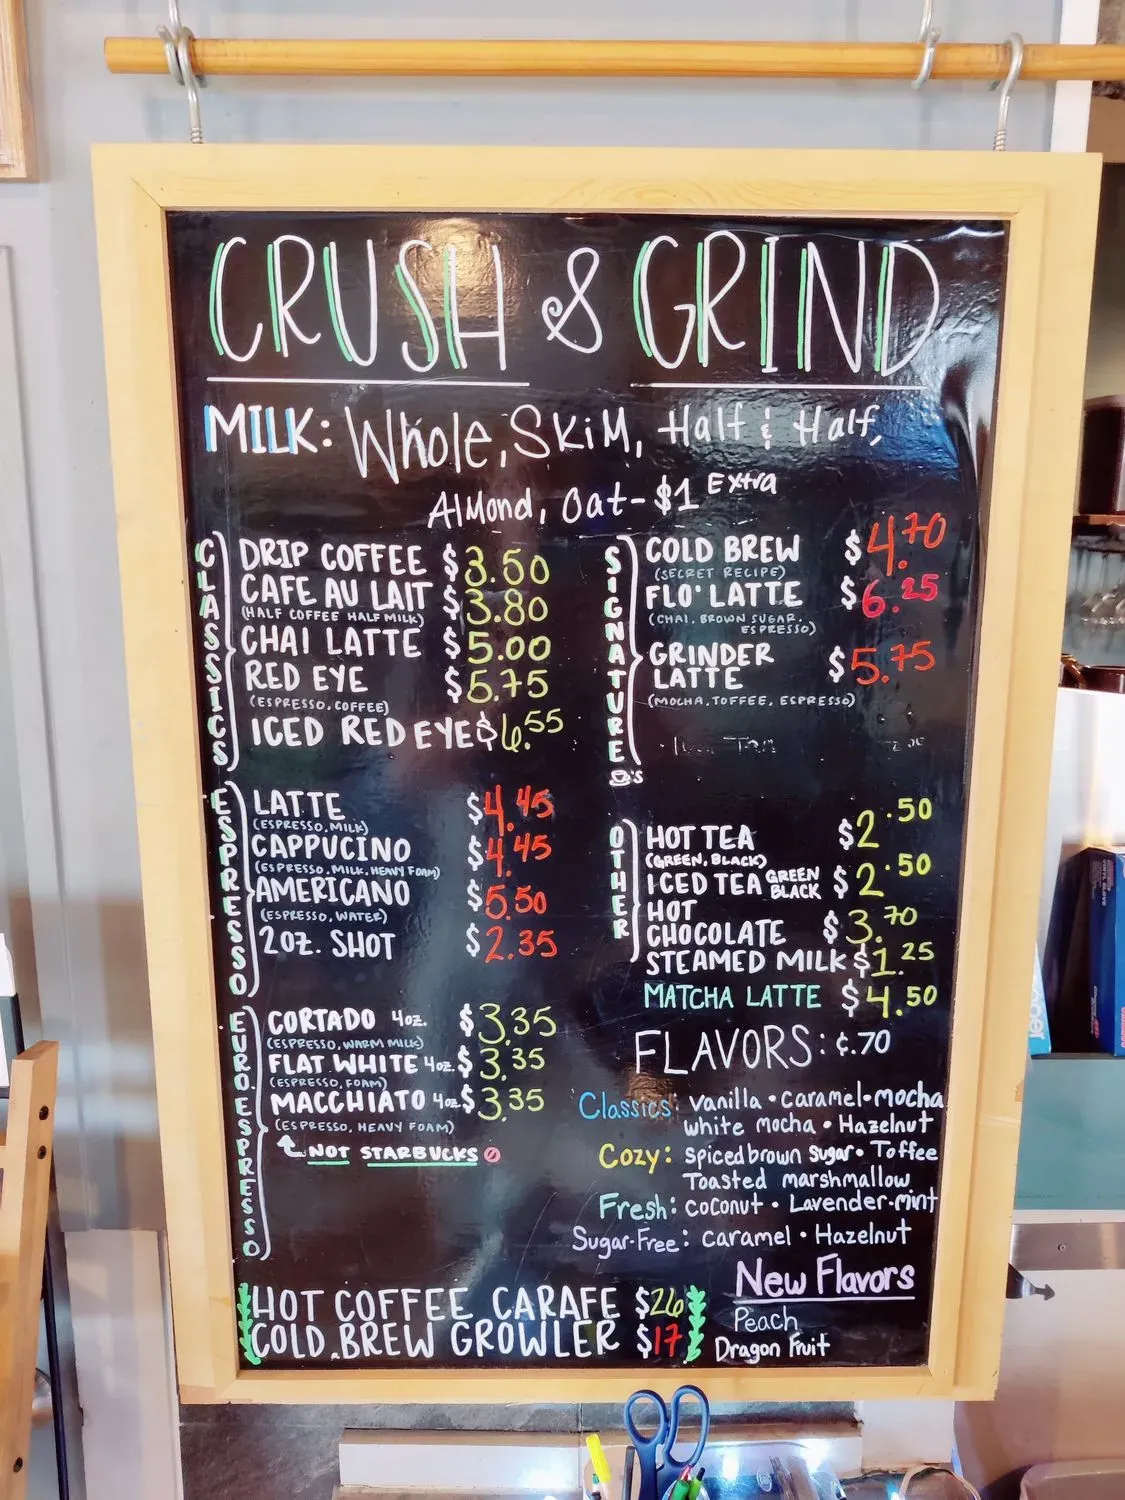 CRUSH & GRIND
MILK: Whole, Skim, Half & Half,
Almond, Oat - $1 Extra
CLASSICS
DRIP COFFEE $3.50
CAFE AU LAIT $3.80
(HALF COFFEE HALF MILK)
CHAI LATTE $5.00
RED EYE $5.75
(ESPRESSO, COFFEE)
ICED RED EYE $6.55
ESPRESSO
LATTE $4.45
(ESPRESSO, MILK)
CAPPUCINO $4.45
(ESPRESSO, MILK, HEAVY FOAM)
AMERICANO $5.50
(ESPRESSO, WATER)
2OZ. SHOT $2.35
EURO. ESPRESSO
CORTADO 4oz. $3.35
(ESPRESSO, WARM MILK)
FLAT WHITE 4oz. $3.35
(ESPRESSO, FOAM)
MACCHIATO 4oz. $3.35
(ESPRESSO, HEAVY FOAM)
NOT STARBUCKS
SIGNATURE'S
COLD BREW $4.70
(SECRET RECIPE)
FLO' LATTE $6.25
(CHAI, BROWN SUGAR,
ESPRESSO)
GRINDER
LATTE $5.75
(MOCHA, TOFFEE, ESPRESSO)
OTHER
HOT TEA $2.50
(GREEN, BLACK)
ICED TEA GREEN BLACK $2.50
HOT
CHOCOLATE $3.70
STEAMED MILK $1.25
MATCHA LATTE $4.50
FLAVORS: ¢.70
Classics: vanilla • caramel • mocha
white mocha • Hazelnut
Cozy: spiced brown sugar • Toffee
Toasted marshmallow
Fresh: coconut • Lavender • mint
Sugar-Free: caramel • Hazelnut
New Flavors
Peach
Dragon Fruit
HOT COFFEE CARAFE $26
COLD BREW GROWLER $17